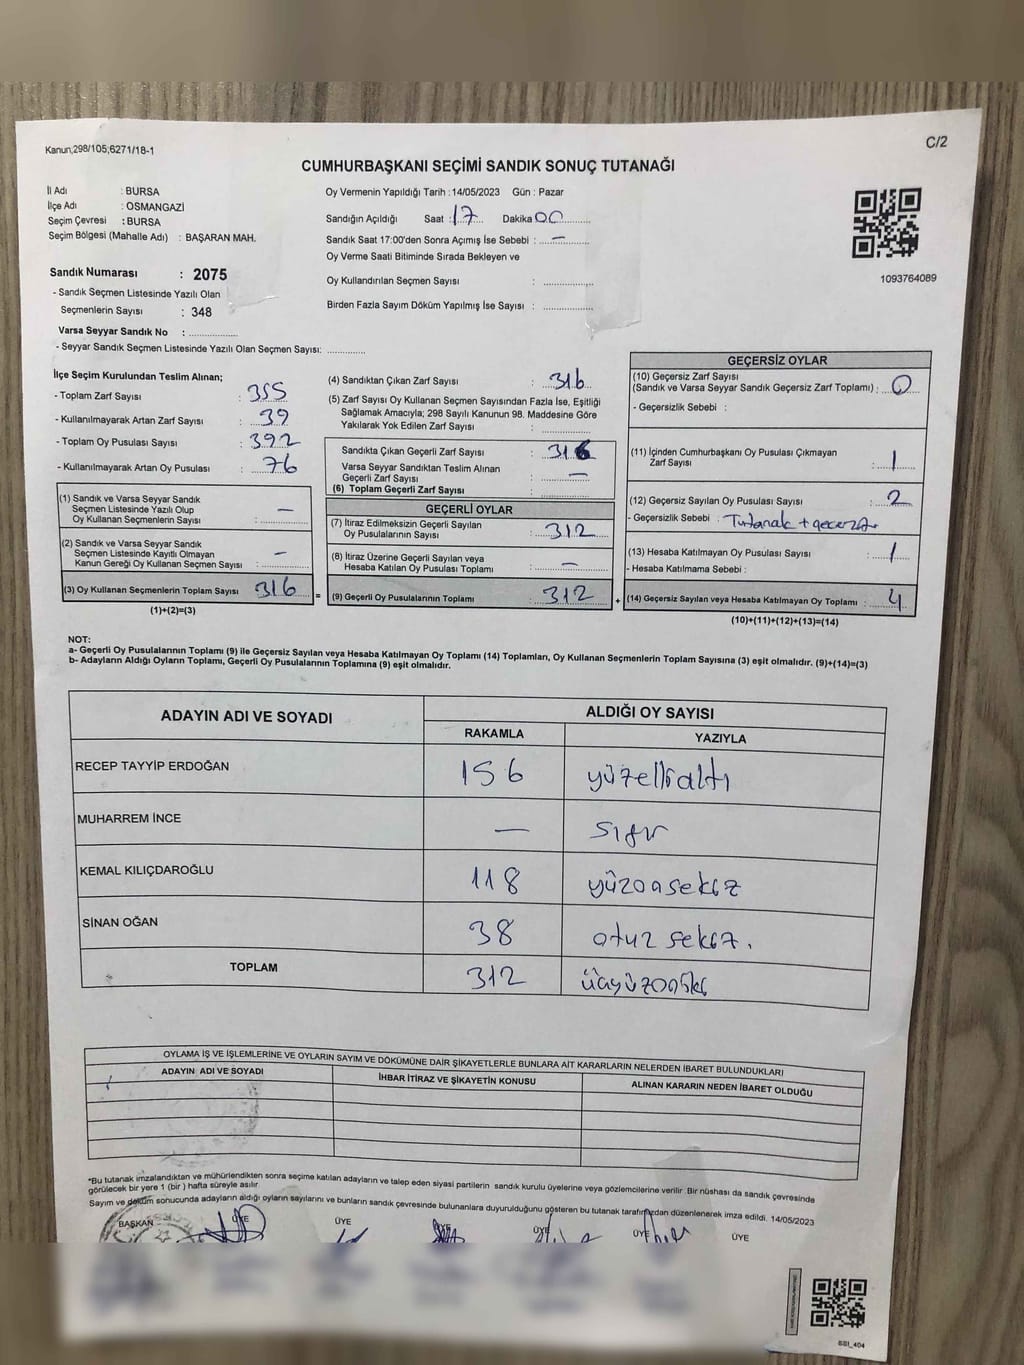 Kanun;298/105,6271/18-1
C/2
CUMHURBAŞKANI SEÇİMİ SANDIK SONUÇ TUTANAĞI
İl Adı : BURSA
İlçe Adı : OSMANGAZİ
Seçim Çevresi : BURSA
Seçim Bölgesi (Mahalle Adı) : BAŞARAN MAH.
Sandık Numarası : 2075
- Sandık Seçmen Listesinde Yazılı Olan
Seçmenlerin Sayısı : 348
Varsa Seyyar Sandık No : ................
- Seyyar Sandık Seçmen Listesinde Yazılı Olan Seçmen Sayısı: .............
Oy Vermenin Yapıldığı Tarih : 14/05/2023 Gün : Pazar
Sandığın Açıldığı Saat : 17 Dakika 00
Sandık Saat 17:00'den Sonra Açımış İse Sebebi : —
Oy Verme Saati Bitiminde Sırada Bekleyen ve
Oy Kullandırılan Seçmen Sayısı : ................
Birden Fazla Sayım Döküm Yapılmış İse Sayısı : ................
1093764089
İlçe Seçim Kurulundan Teslim Alınan;
- Toplam Zarf Sayısı : 355
- Kullanılmayarak Artan Zarf Sayısı : 39
- Toplam Oy Pusulası Sayısı : 392
- Kullanılmayarak Artan Oy Pusulası : 76
(1) Sandık ve Varsa Seyyar Sandık
Seçmen Listesinde Yazılı Olup
Oy Kullanan Seçmenlerin Sayısı : —
(2) Sandık ve Varsa Seyyar Sandık
Seçmen Listesinde Kayıtlı Olmayan
Kanun Gereği Oy Kullanan Seçmen Sayısı : —
(3) Oy Kullanan Seçmenlerin Toplam Sayısı 316 =
(1)+(2)=(3)
(4) Sandıktan Çıkan Zarf Sayısı : 316
(5) Zarf Sayısı Oy Kullanan Seçmen Sayısından Fazla İse, Eşitliği
Sağlamak Amacıyla; 298 Sayılı Kanunun 98. Maddesine Göre
Yakılarak Yok Edilen Zarf Sayısı : ................
Sandıkta Çıkan Geçerli Zarf Sayısı : 316
Varsa Seyyar Sandıktan Teslim Alınan
Geçerli Zarf Sayısı : —
(6) Toplam Geçerli Zarf Sayısı : ................
GEÇERLİ OYLAR
(7) İtiraz Edilmeksizin Geçerli Sayılan
Oy Pusulalarının Sayısı : 312
(8) İtiraz Üzerine Geçerli Sayılan veya
Hesaba Katılan Oy Pusulası Toplamı : —
(9) Geçerli Oy Pusulalarının Toplamı : 312 +
GEÇERSİZ OYLAR
(10) Geçersiz Zarf Sayısı
(Sandık ve Varsa Seyyar Sandık Geçersiz Zarf Toplamı) : 0
- Geçersizlik Sebebi :
(11) İçinden Cumhurbaşkanı Oy Pusulası Çıkmayan
Zarf Sayısı : 1
(12) Geçersiz Sayılan Oy Pusulası Sayısı : 2
- Geçersizlik Sebebi : Tutanak +
(13) Hesaba Katılmayan Oy Pusulası Sayısı : 1
- Hesaba Katılmama Sebebi :
(14) Geçersiz Sayılan veya Hesaba Katılmayan Oy Toplamı : 4
(10)+(11)+(12)+(13)=(14)
NOT:
a- Geçerli Oy Pusulalarının Toplamı (9) ile Geçersiz Sayılan veya Hesaba Katılmayan Oy Toplamı (14) Toplamları, Oy Kullanan Seçmenlerin Toplam Sayısına (3) eşit olmalıdır. (9)+(14)=(3)
b- Adayların Aldığı Oyların Toplamı, Geçerli Oy Pusulalarının Toplamına (9) eşit olmalıdır.
ADAYIN ADI VE SOYADI
ALDIĞI OY SAYISI
RAKAMLA YAZIYLA
RECEP TAYYİP ERDOĞAN 156 yüzellialtı
MUHARREM İNCE — sıfır
KEMAL KILIÇDAROĞLU 118 yüzonsekiz
SİNAN OĞAN 38 otuz sekiz.
TOPLAM 312 üçyüzoniki
OYLAMA İŞ VE İŞLEMLERİNE VE OYLARIN SAYIM VE DÖKÜMÜNE DAİR ŞİKAYETLERLE BUNLARA AİT KARARLARIN NELERDEN İBARET BULUNDUKLARI
ADAYIN ADI VE SOYADI İHBAR İTİRAZ VE ŞİKAYETİN KONUSU ALINAN KARARIN NEDEN İBARET OLDUĞU
*Bu tutanak imzalandıktan ve mühürlendikten sonra seçime katılan adayların ve talep eden siyasi partilerin sandık kurulu üyelerine veya gözlemcilerine verilir. Bir nüshası da sandık çevresinde
görülecek bir yere 1 (bir) hafta süreyle asılır.
Sayım ve döküm sonucunda adayların aldığı oyların sayılarını ve bunların sandık çevresinde bulunanlara duyurulduğunu gösteren bu tutanak tarafımızdan düzenlenerek imza edildi. 14/05/2023
BAŞKAN ÜYE ÜYE ÜYE ÜYE ÜYE ÜYE
SSI_404